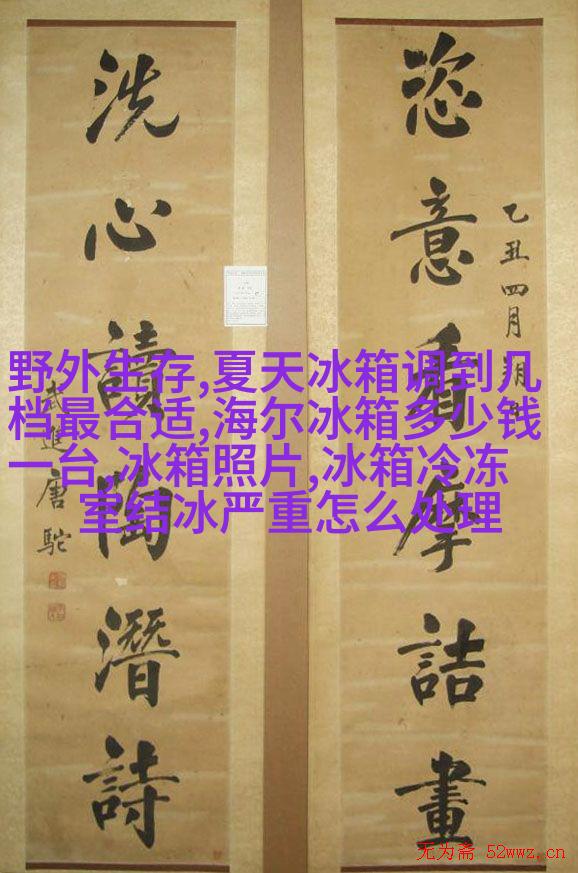 恣意看摩詰畫
乙丑四月
洗心讀陶潛詩
武進唐駝
野外生存,夏天冰箱调到几
档最合适,海尔冰箱多少钱
一台,冰箱照片,冰箱冷冻
室结冰严重怎么处理
无为斋 52wwz.cn